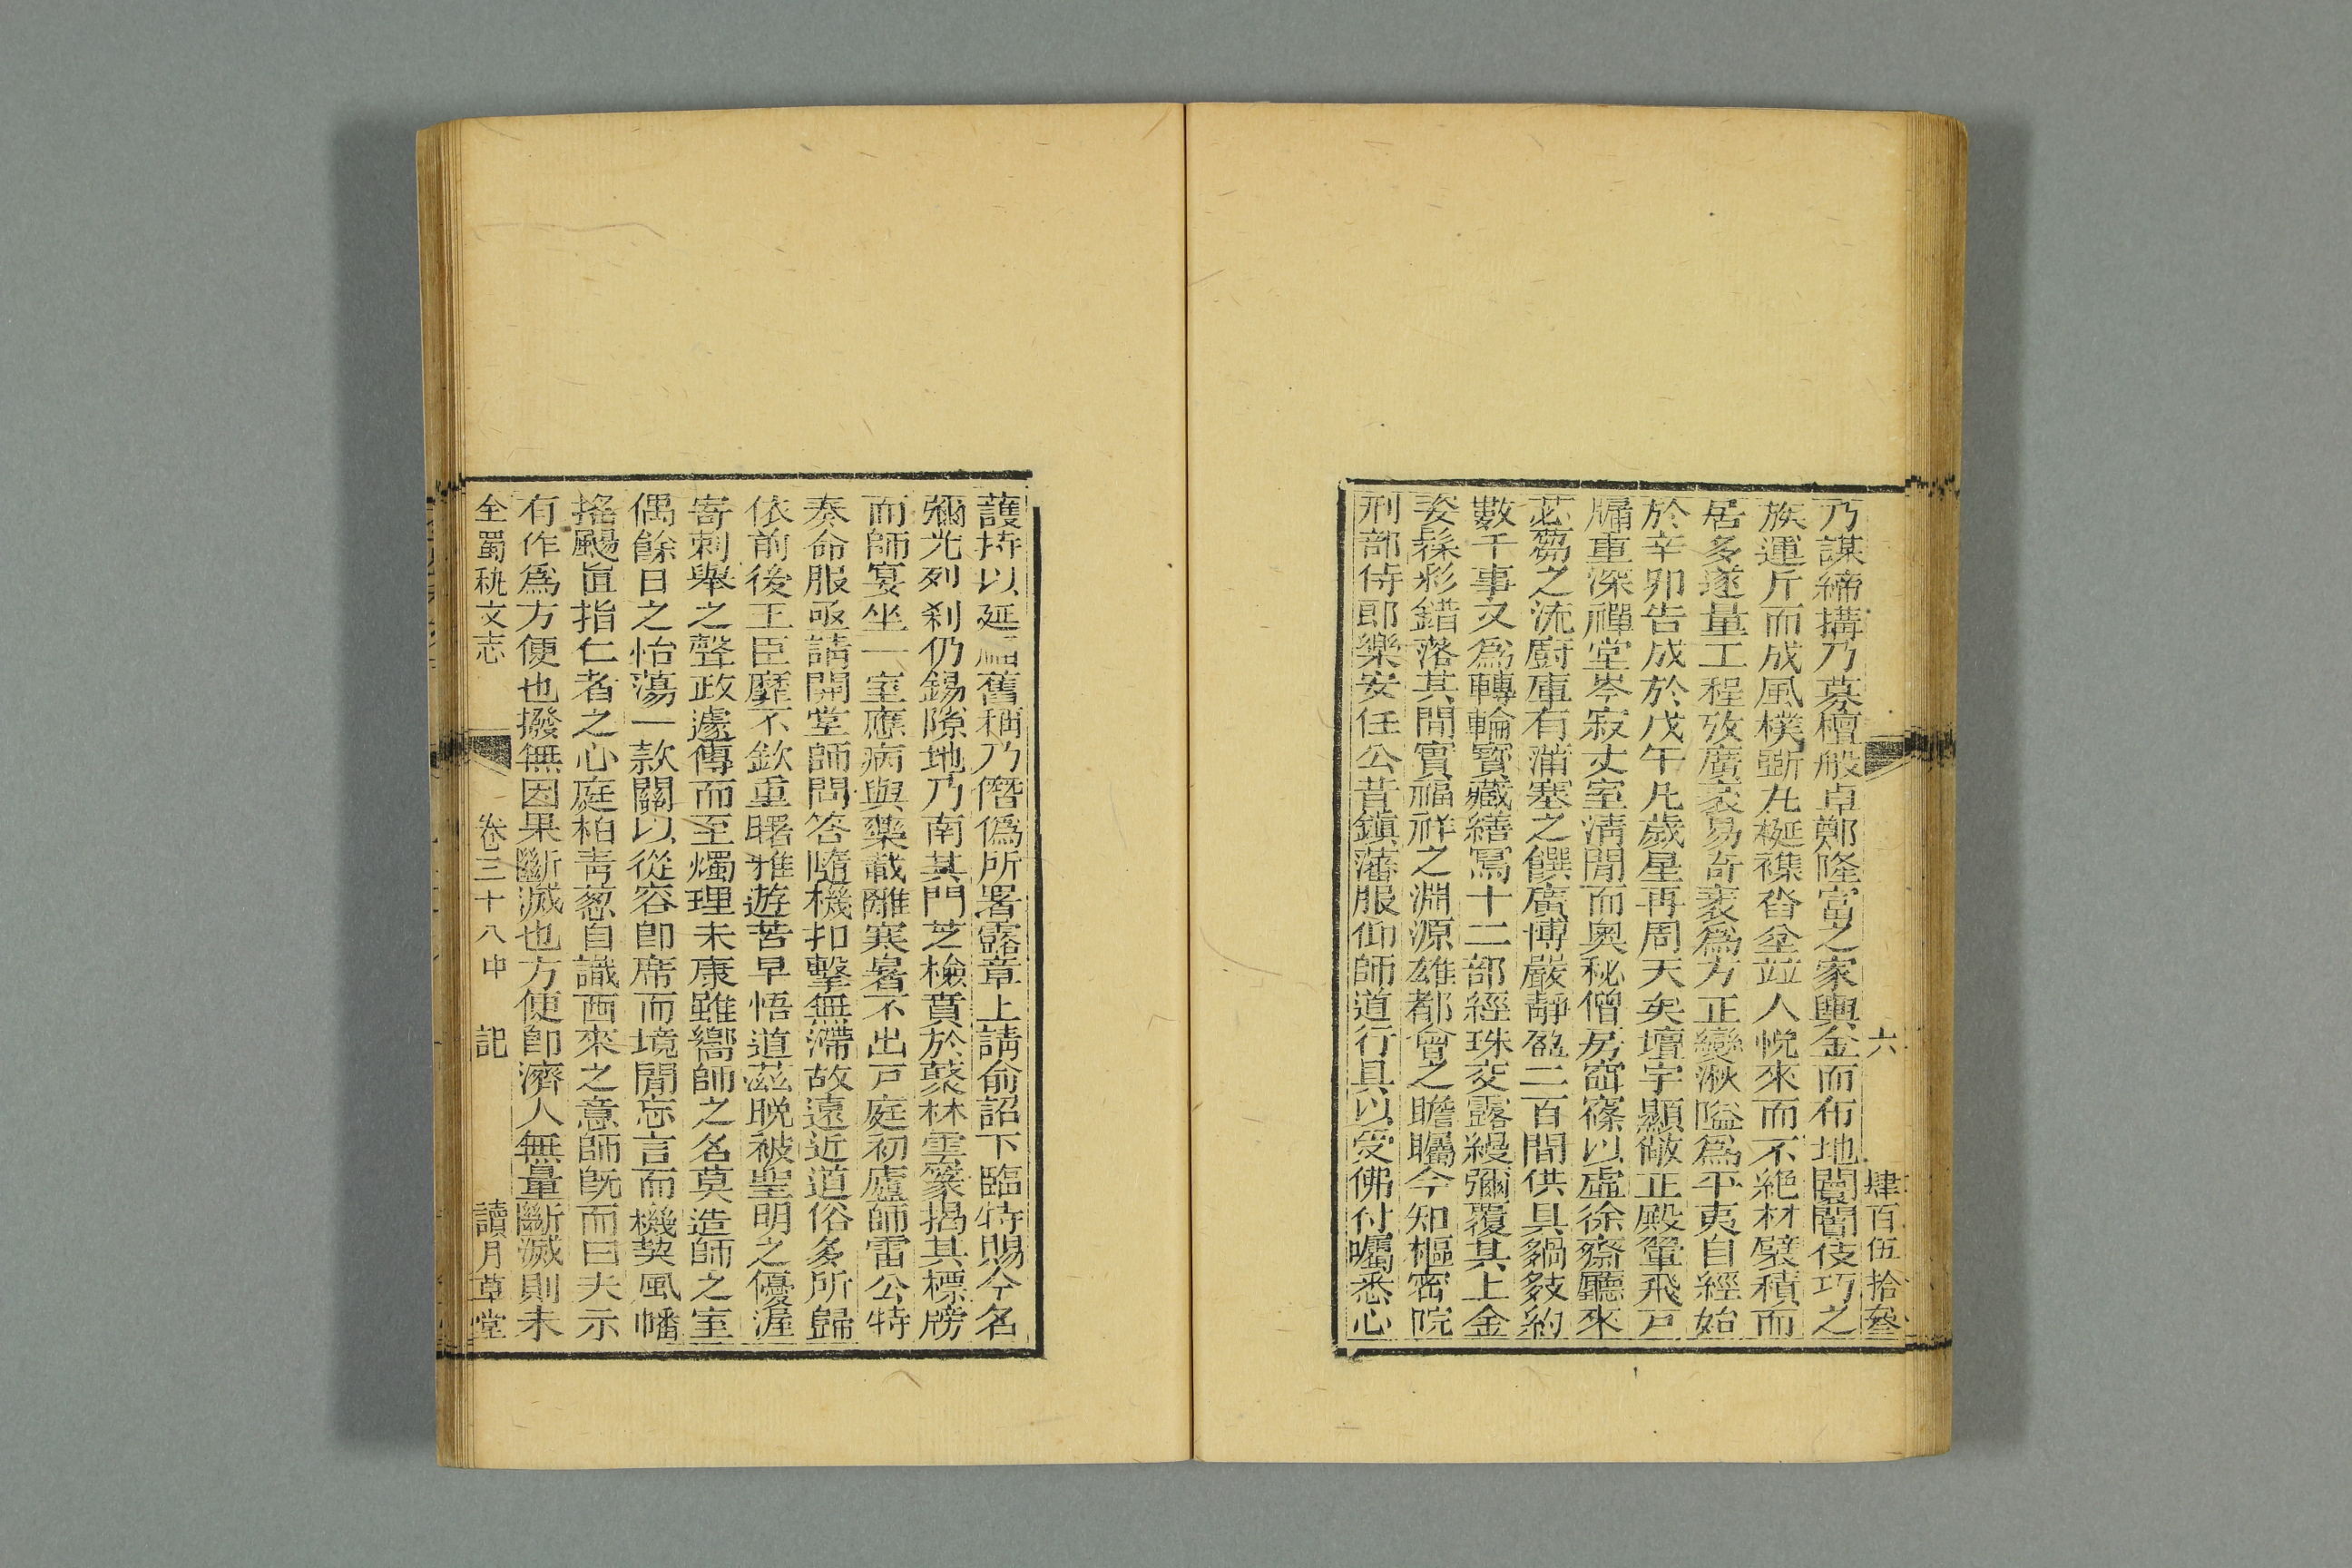 六 肆百伍拾叁
乃謀締搆乃募檀般卓鄭隆富之家輿金而布地闤闠伎巧之
族運斤而成風樸斲九梴襍沓坌竝人悅來而不絶材甓積而
居多遂量工程攷廣袤易奇衺爲方正變湫隘爲平夷自經始
於辛卯告成於戊午凡歲星再周天矣壇宇顯敞正殿翬飛戸
牖重深禪堂岑寂丈室淸閒而奧秘僧房窗窱以虛徐齋廳來
苾蒭之流廚庫有蒲塞之饌廣博嚴靜盈二百間供具夥敥約
數千事又爲轉輪寳藏繕冩十二部經珠交露縵彌覆其上金
姿髹彩錯落其間實福祥之淵源雄都會之瞻矚今知樞密院
刑部侍郎樂安任公昔鎮藩服仰師道行具以受佛付囑悉心
護持以延福舊稱乃僭僞所署露章上請俞詔下臨特賜今名
彌光列刹仍錫隙地乃南其門芝檢賁於蘂林雲篆揭其標牓
而師宴坐一室應病與藥載離寒暑不出戸庭初廬師雷公特
奏命服亟請開堂師問答隨機扣擊無滯故遠近道俗多所歸
依前後王臣靡不欽重曙雅遊苦早悟道茲晩被聖明之優渥
寄刺舉之聲政遽傳而至燭理未康雖嚮師之名莫造師之室
偶餘日之怡蕩一款關以從容卽席而境閒忘言而機契風幡
搖颺直指仁者之心庭柏靑葱自識西來之意師旣而曰夫示
有作爲方便也撥無因果斷滅也方便卽濟人無量斷滅則未
全蜀秇文志 卷三十八中 記 讀月草堂